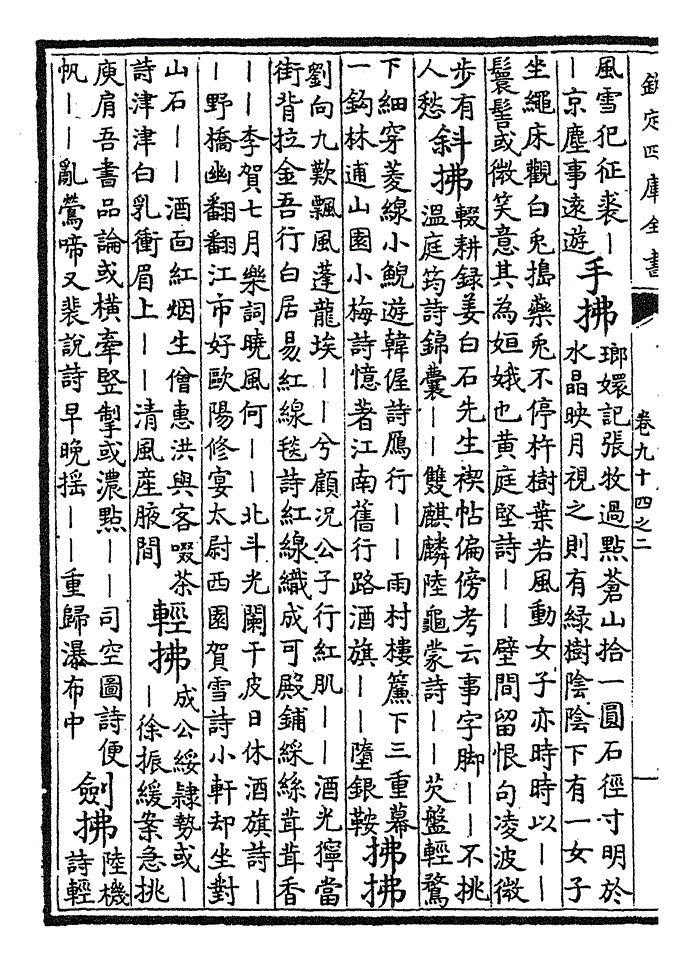 欽定四庫全書
卷九十四之二
風雪犯征裘｜
｜京塵事遠遊
手拂
瑯嬛記張牧過點蒼山拾一圓石徑寸明於
水晶映月視之則有綠樹陰陰下有一女子
坐繩床觀白兎搗藥兎不停杵樹葉若風動女子亦時時以｜｜
鬟髻或微笑意其為姮娥也黄庭堅詩｜｜壁間留恨句凌波微
步有
人愁
斜拂
輟耕録姜白石先生禊帖偏傍考云事字脚｜｜不挑
温庭筠詩錦囊｜｜雙麒麟陸龜蒙詩｜｜芡盤輕鶩
下細穿菱線小鯢遊韓偓詩鴈行｜｜雨村樓簾下三重幕
一鈎林逋山園小梅詩憶著江南舊行路酒旗｜｜墮銀鞍
拂拂
劉向九歎飄風蓬龍埃｜｜兮顧况公子行紅肌｜｜酒光獰當
街背拉金吾行白居易紅線毯詩紅線織成可殿鋪綵絲茸茸香
｜｜李賀七月樂詞曉風何｜｜北斗光闌干皮日休酒旗詩｜
｜野橋幽翻翻江市好歐陽修宴太尉西園賀雪詩小軒却坐對
山石｜｜酒面紅烟生僧惠洪與客啜茶
詩津津白乳衝眉上｜｜清風産腋間
輕拂
成公綏隷勢或｜
｜徐振緩案急挑
庾肩吾書品論或横牽竪掣或濃點｜｜司空圖詩便
帆｜｜亂鶯啼又裴説詩早晚揺｜｜重歸瀑布中
劍拂
陸機
詩輕